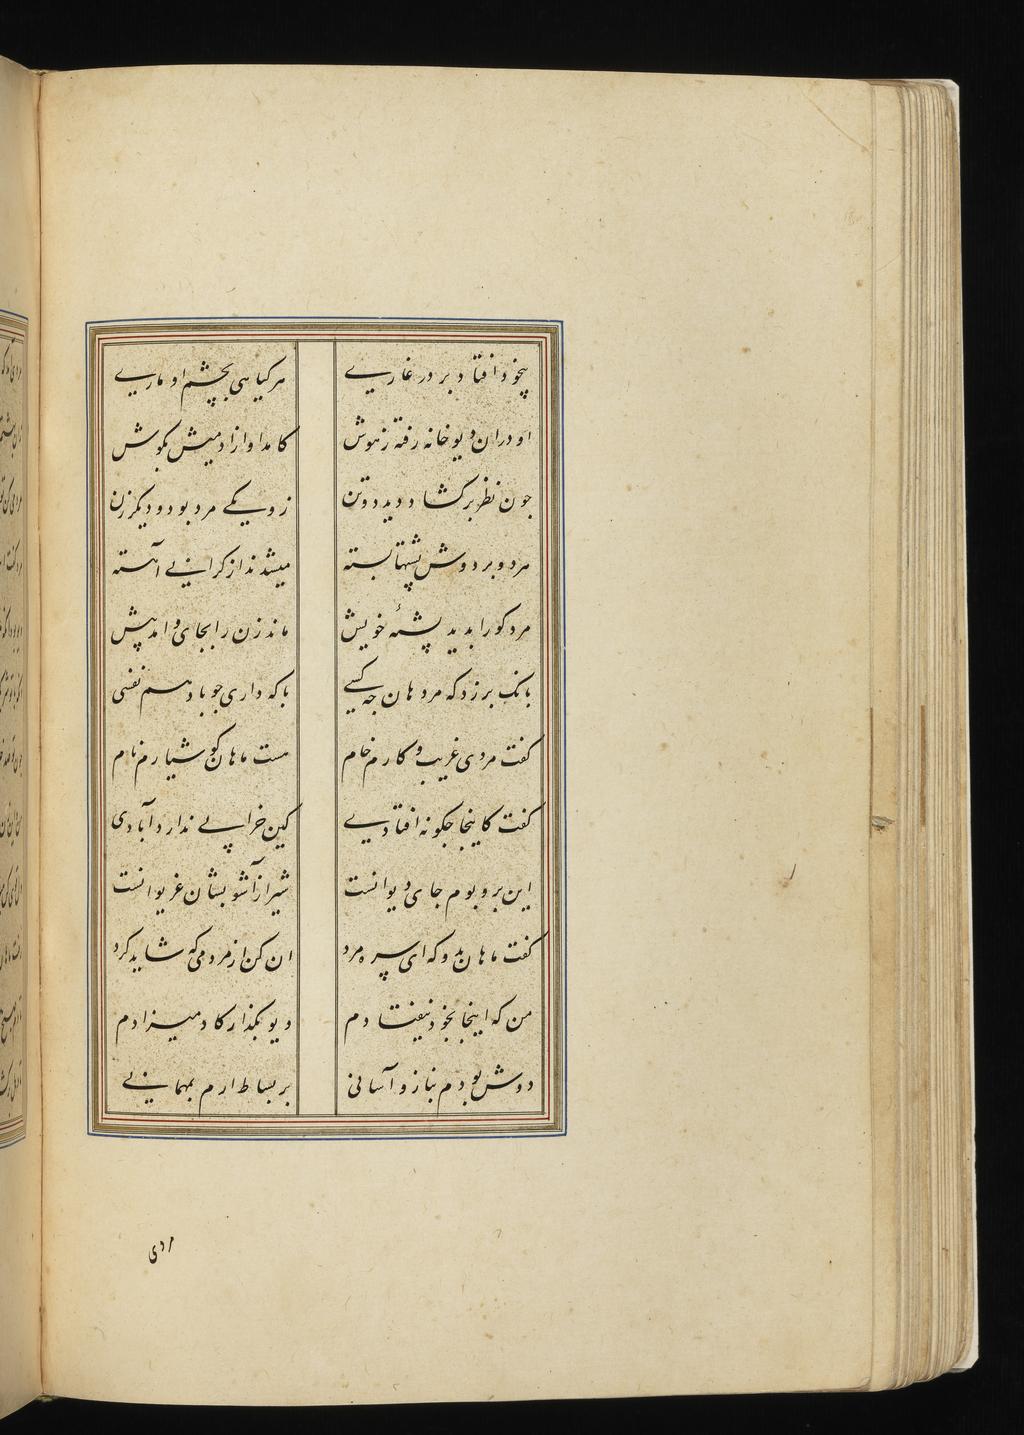 بیخود افتاد بر در غاریے هر کیاهی بچشم او ماریے
او دران دیو خانه رفته زهوش کامد اواز ادمیش بکوش
جون نظر بر کشاد دید دو تن زو یکے مرد بود و دیکر زن
هر دو بر دوش پشتها بسته میشدند از کرانیے آهسته
مرد کو را بدید پشتهٔ خویش ماند زن را بجای و امد پیش
بانک بر زد که مرد هان جه کسیے با که داری جو باد هم نفسی
کفت مردی غریب و کارم خام هست ماهان کوشیارم نام
کفت کاینجا جکونه افتادیے کین خرابے ندارد آبادی
این بر و بوم جای دیوانست شیر از آشوبشان غریوانست
کفت ماهان بدو که ای سره مرد ان کن از مردمی که شاید کرد
من که اینجا بخود نیفتادم دیو بکذار کادمیزادم
دوش بودم بناز و آسانی بر بساط ارم بمهمانیے
مردی